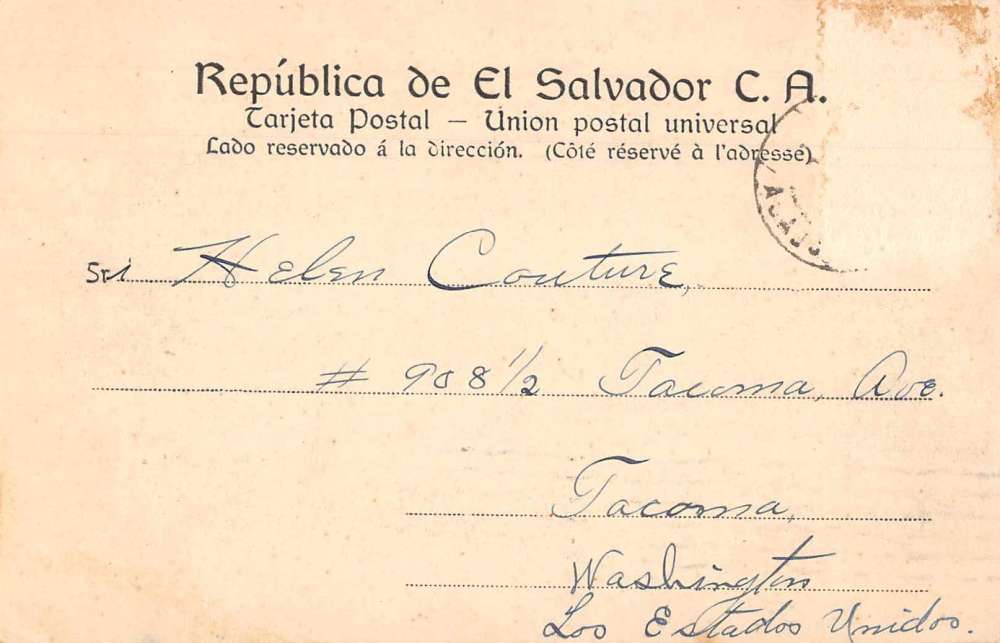 República de El Salvador C. A.
Tarjeta Postal — Union postal universal
Lado reservado á la dirección. (Côté réservé à l'adresse)
Helen Couture,
# 908 1/2 Tacoma, Ave.
Tacoma,
Washington
Los Estados Unidos.